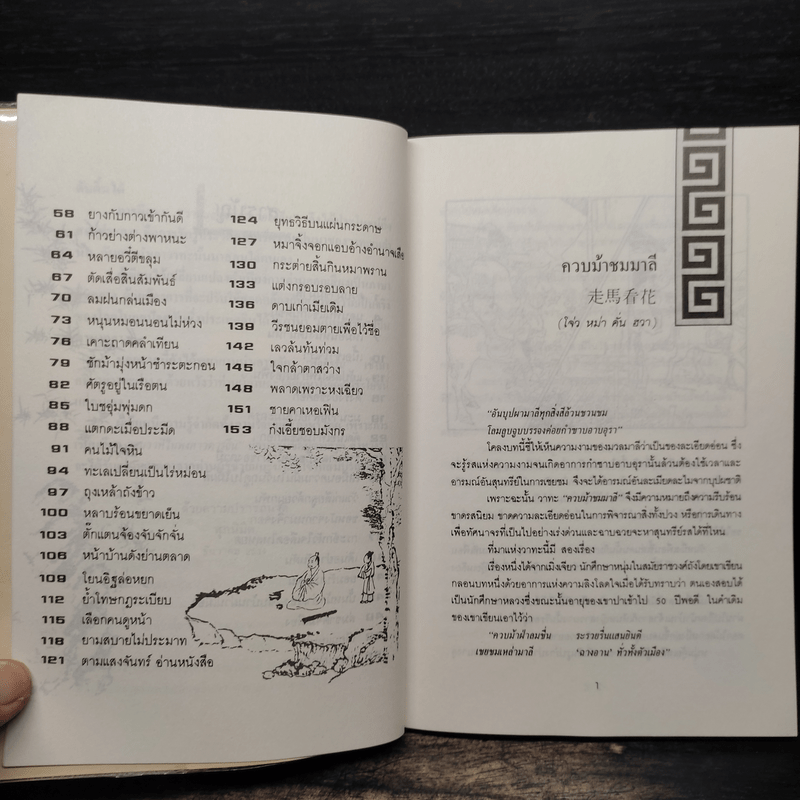 58 ยางกับกาวเข้ากันดี
61 ก้าวย่างต่างพาหนะ
64 หลายอวี่ตีขลุม
67 ตัดเสื่อสิ้นสัมพันธ์
70 ลมฝนกล่นเมือง
73 หนุนหมอนนอนไม่ห่วง
76 เคาะถาดคลำเทียน
79 ชักม้ามุ่งหน้าชำระตะกอน
82 ศัตรูอยู่ในเรือตน
85 ใบชอุ่มพุ่มดก
88 แตกดะเมื่อประมืด
91 คนไม้ใจหิน
94 ทะเลเปลี่ยนเป็นไร่หม่อน
97 ถุงเหล้าถังข้าว
100 หลาบร้อนขยาดเย็น
103 ตั๊กแตนจ้องจับจักจั่น
106 หน้าบ้านดังย่านตลาด
109 โยนอิฐล่อหยก
112 ย้ำโทษกฎระเบียบ
115 เลือกคนดูหน้า
118 ยามสบายไม่ประมาท
121 ตามแสงจันทร์ อ่านหนังสือ
124 ยุทธวิธีบนแผ่นกระดาษ
127 หมาจิ้งจอกแอบอ้างอำนาจเสือ
130 กระต่ายสิ้นกินหมาพราน
133 แต่งกรอบรอบลาย
136 ดาบเก่าเมียเดิม
139 วีรชนยอมตายเพื่อไว้ชื่อ
142 เลวล้นท้นท่วม
145 ใจกล้าตาสว่าง
148 พลาดเพราะหงเฉียว
151 ชายคาเหอเฟิน
153 กงเอี้ยชอบมังกร
ควบม้าชมมาลี
走馬看花
(ใจ่ว หม่า คั่น ฮวา)
"อันบุปผามาลีทุกสิ่งสีล้วนชวนชม
โลมลูบจูบบรรจงค่อยก่ำซาบอาบอุรา"
โคลงบทนี้ชี้ให้เห็นความงามของมวลมาลีว่าเป็นของละเอียดอ่อน ซึ่ง
จะรู้รสแห่งความงามจนเกิดอาการก่ำซาบอาบอุรานั้นล้วนต้องใช้เวลาและ
อารมณ์อันสุนทรีย์ในการเชยชม จึงจะได้อารมณ์อันละเมียดละไมจากบุปผชาติ
เพราะฉะนั้น วาทะ "ควบม้าชมมาลี" จึงมีความหมายถึงความรีบร้อน
ขาดรสนิยม ขาดความละเอียดอ่อนในการพิจารณาสิ่งทั้งปวง หรือการเดินทาง
เพื่อทัศนาจรที่เป็นไปอย่างเร่งด่วนและฉาบฉวยจะหาสุนทรีย์รสได้ที่ไหน
ที่มาแห่งวาทะนี้มี สองเรื่อง
เรื่องหนึ่งได้จากเมิ่งเจียว นักศึกษาหนุ่มในสมัยราชวงศ์ถังโดยเขาเขียน
กลอนบทหนึ่งด้วยอาการแห่งความลิงโลดใจเมื่อได้รับทราบว่า ตนเองสอบได้
เป็นนักศึกษาหลวงซึ่งขณะนั้นอายุของเขาปาเข้าไป 50 ปีพอดี ในคำเดิม
ของเขาเขียนเอาไว้ว่า
"ควบม้าฝ่าลมชื่น ระรายรื่นแสนยินดี
เชยชมเหล่ามาลี 'ฉางอาน' ทั่วทั้งตัวเมือง"
1